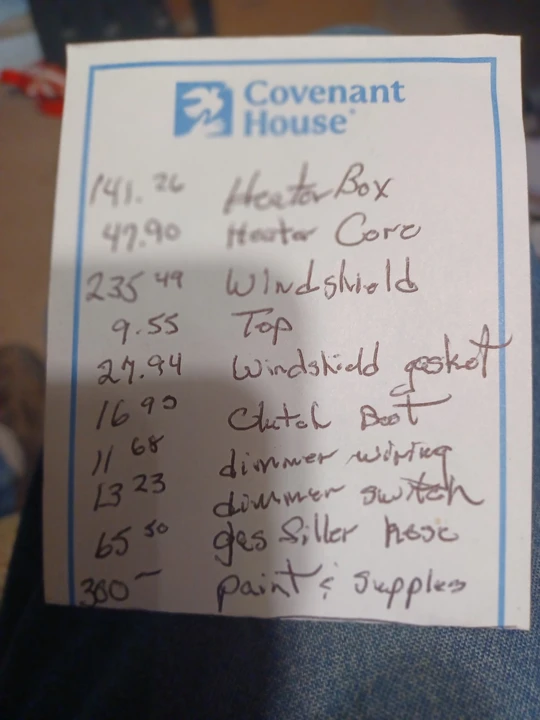 Covenant
House
141.26 Heater Box
47.90 Heater Core
235 49 Windshield
9.55 Top
27.94 Windshield gasket
16 90 Clutch Boot
11 68 dimmer wiring
13 23 dimmer switch
65 50 gas filler hose
300 — paint & supplies